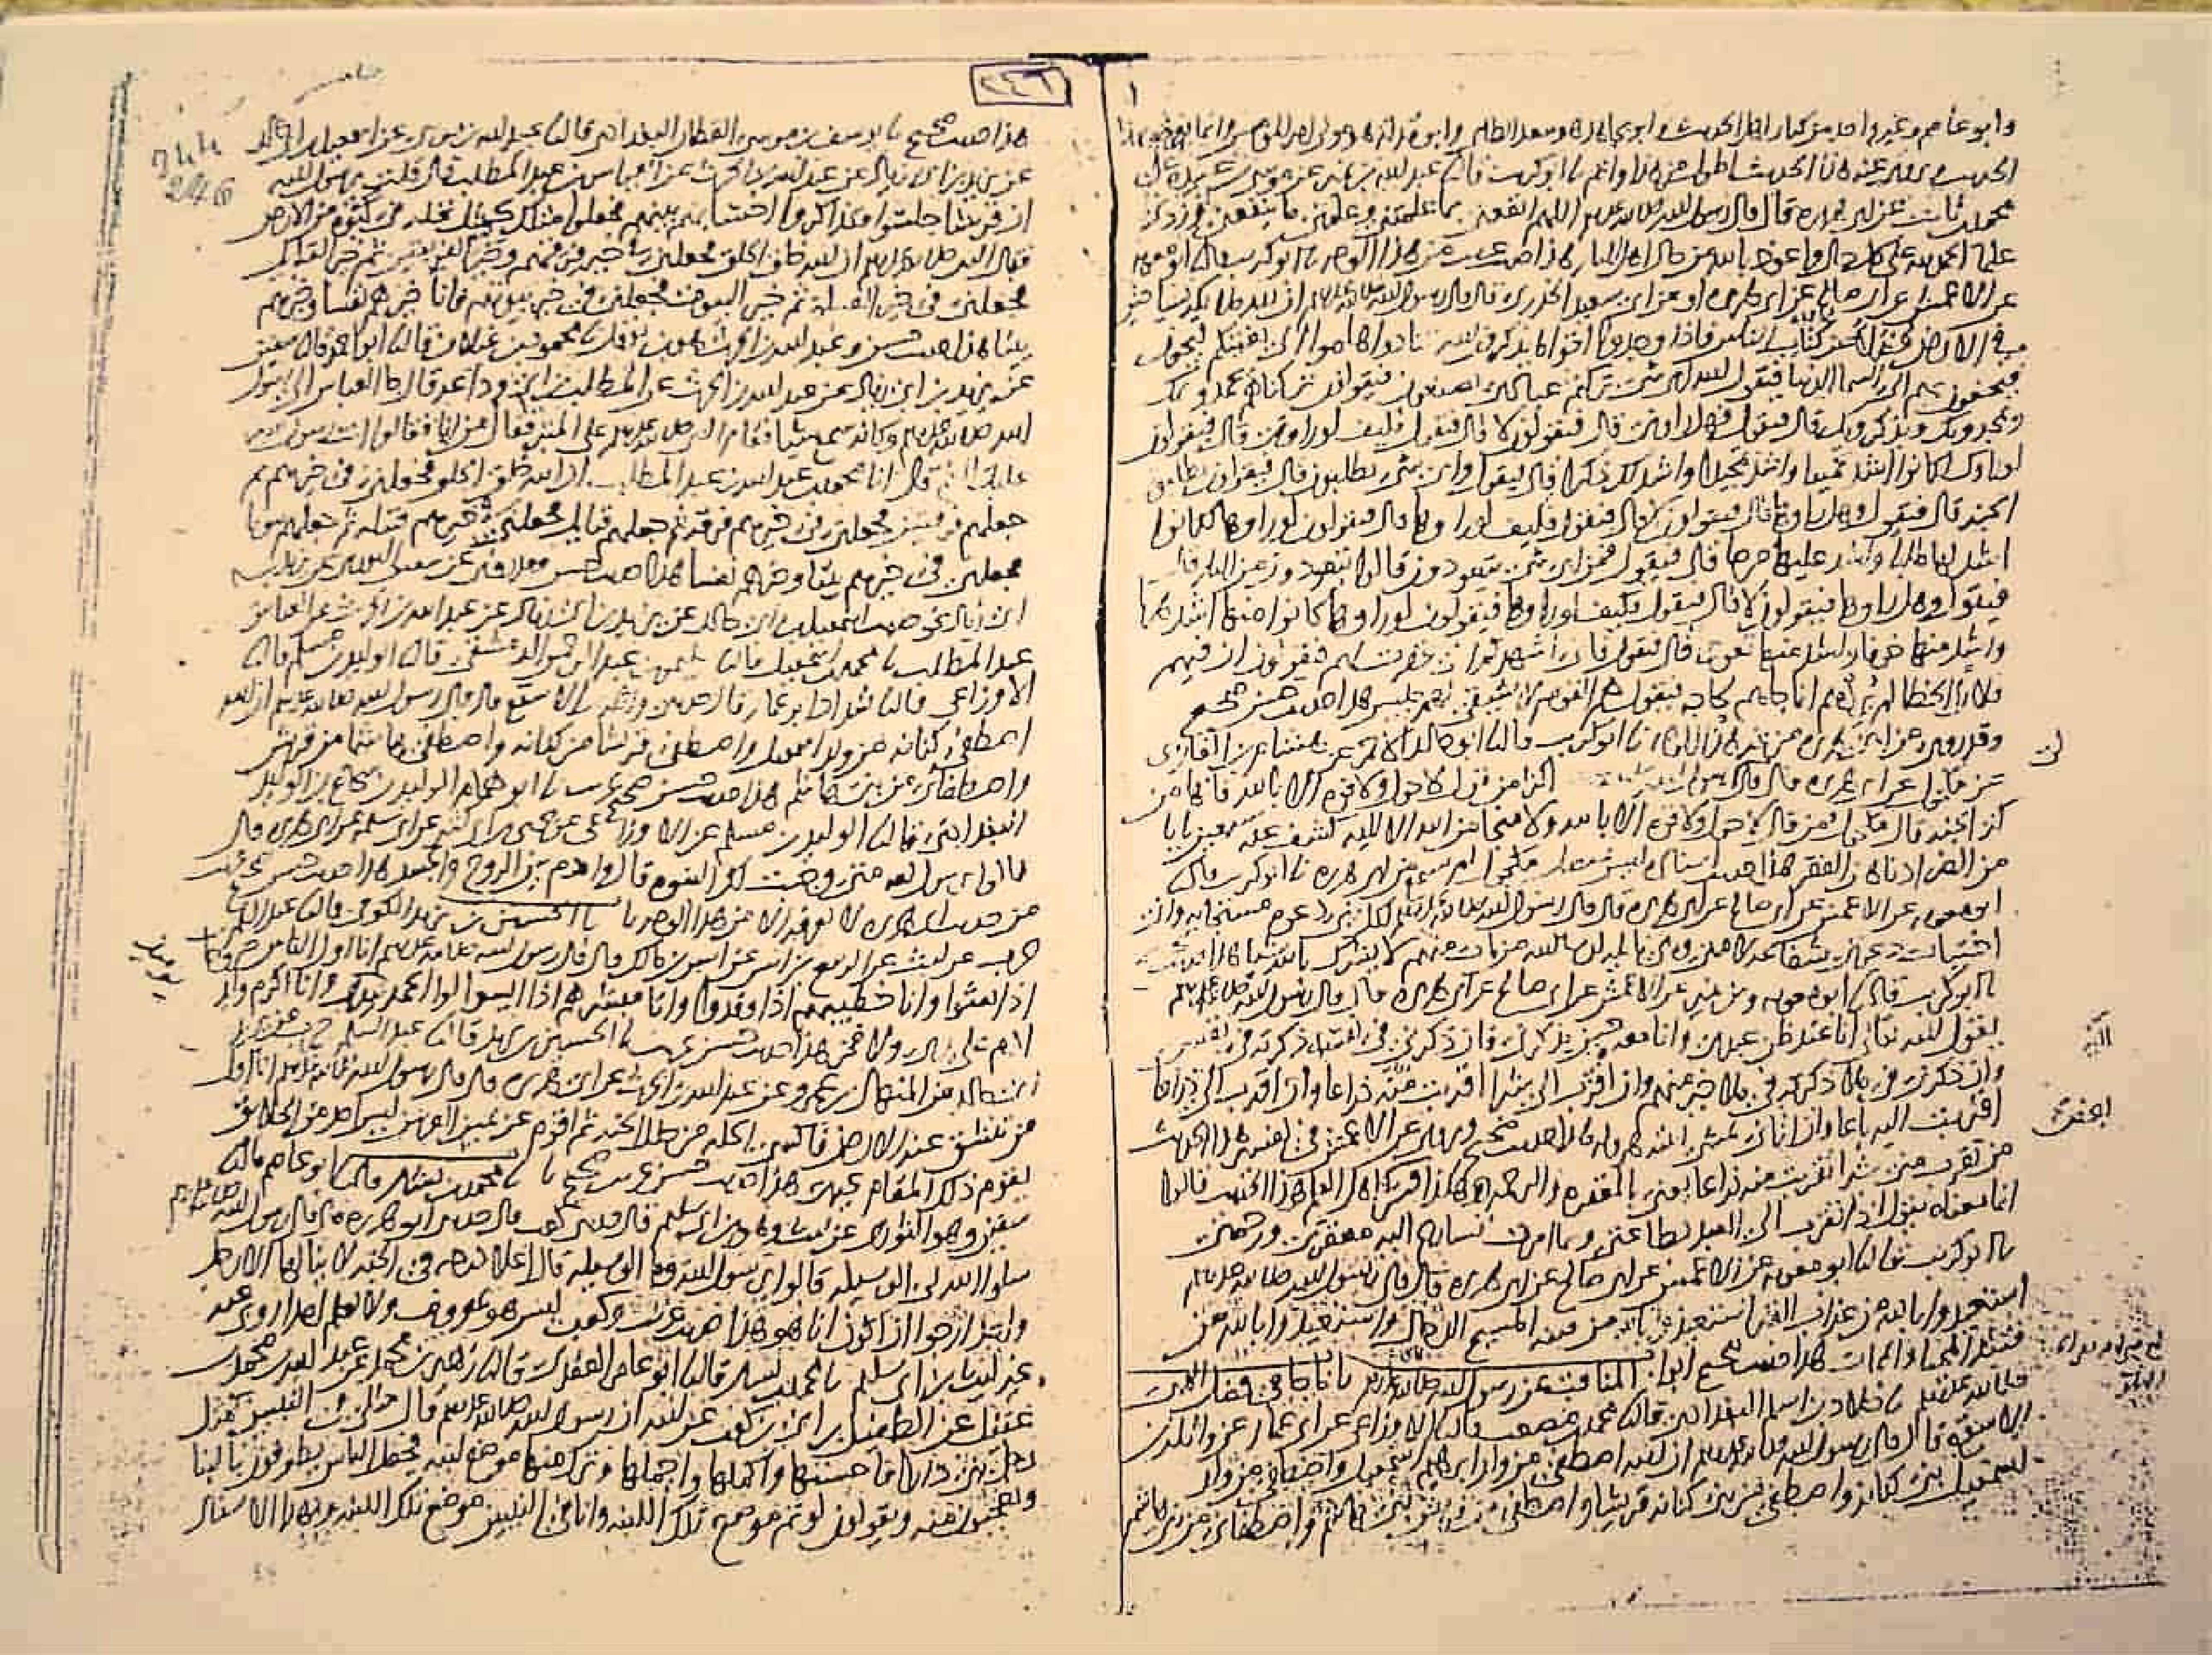 وابو عاصم وغير واحد من كبار اهل الحديث وابو مجاهد هو سعد الطائي وابو مدله هو مولى ام المومنين وانما نعرفه بهذا
الحديث ويروى عنه هذا الحديث اطول من هذا واتم نا ابو كريب قال نا عبد الله بن نمير عن موسى بن عبيدة عن
محمد بن ثابت عن ابي هريرة قال قال رسول الله صلى الله عليه وسلم اللهم انفعني بما علمتني وعلمني ما ينفعني وزدني
علما الحمد لله على كل حال واعوذ بالله من حال اهل النار هذا حديث غريب من هذا الوجه نا ابو كريب قال نا ابو معوية
عن الاعمش عن ابي صالح عن ابي هريرة او عن ابي سعيد الخدري قال قال رسول الله صلى الله عليه وسلم ان لله ملايكة سياحين
في الارض فضلا عن كتاب الناس فاذا وجدوا اقواما يذكرون الله تنادوا هلموا الى بغيتكم فيجيون
فيحفون بهم الى السما الدنيا فيقول الله اي شي تركتم عبادي يصنعون فيقولون تركناهم يحمدونك
ويمجدونك ويذكرونك قال فيقول فهل راوني قال فيقولون لا قال فيقول فكيف لو راوني قال فيقولون
لو راوك لكانوا اشد تحميدا واشد تمجيدا واشد لك ذكرا قال فيقول واي شي يطلبون قال فيقولون يطلبون
الجنة قال فيقول وهل راوها قال فيقولون لا قال فيقول فكيف لو راوها قال فيقولون لو راوها لكانوا
اشد لها طلبا واشد عليها حرصا قال فيقول فمن اي شي يتعوذون قالوا يتعوذون من النار قال
فيقول وهل راوها فيقولون لا قال فيقول فكيف لو راوها فيقولون لو راوها كانوا منها اشد هربا
واشد منها خوفا واشد منها تعوذا قال فيقول فاني اشهدكم اني قد غفرت لهم فيقولون ان فيهم
فلانا الخطا لم يردهم انما جاهم لحاجة فيقول هم القوم لا يشقى لهم جليس هذا حديث حسن صحيح
وقد روي عن ابي هريرة من غير هذا الوجه نا ابو كريب قال نا ابو خالد الاحمر عن هشام بن الغاز
عن مكحول عن ابي هريرة قال قال رسول الله اكثر من قول لا حول ولا قوة الا بالله فانها من
كنز الجنة قال مكحول فمن قال لا حول ولا قوة الا بالله ولا منجا من الله الا اليه كشف عنه سبعين بابا
من الضر ادناهن الفقر هذا حديث اسناده ليس بمتصل مكحول لم يسمع من ابي هريرة نا ابو كريب قال نا
ابو معوية عن الاعمش عن ابي صالح عن ابي هريرة قال قال رسول الله صلى الله عليه وسلم لكل نبي دعوة مستجابة واني
اختبات دعوتي شفاعة لامتي وهي نايلة ان شا الله من مات منهم لا يشرك بالله شيا هذا حديث
نا ابو كريب قال نا ابو معوية وبن نمير عن الاعمش عن ابي صالح عن ابي هريرة قال قال رسول الله صلى الله عليه وسلم
يقول الله تعالى انا عند ظن عبدي وانا معه حين يذكرني فان ذكرني في نفسه ذكرته في نفسي
وان ذكرني في ملا ذكرته في ملا خير منهم وان اقترب الي شبرا اقتربت منه ذراعا وان اقترب الي ذراعا
اقتربت اليه باعا وان اتاني يمشي اتيته هرولة هذا حديث صحيح ويروى عن الاعمش في تفسير هذا الحديث
من تقرب مني شبرا تقربت منه ذراعا يعني بالمغفرة والرحمة وهكذا فسر بعض اهل العلم هذا الحديث قالوا
انما معناه يقول اذا تقرب الي العبد بطاعتي وبما امرت تسارع اليه مغفرتي ورحمتي
نا ابو كريب قال نا ابو معوية عن الاعمش عن ابي صالح عن ابي هريرة قال قال رسول الله صلى الله عليه وسلم
استعيذوا بالله من عذاب القبر استعيذوا بالله من فتنة المسيح الدجال واستعيذوا بالله من
فتنة المحيا والممات هذا حديث صحيح ابواب المناقب عن رسول الله صلى الله عليه وسلم باب ما جا في فضل النبي
صلى الله عليه وسلم نا خلاد بن اسلم البغدادي قال نا محمد بن مصعب قال نا الاوزاعي عن ابي عمار عن واثلة بن
الاسقع قال قال رسول الله صلى الله عليه وسلم ان الله اصطفى من ولد ابرهيم اسمعيل واصطفى من ولد
اسمعيل بني كنانة واصطفى من بني كنانة قريشا واصطفى من قريش بني هاشم واصطفاني من بني هاشم
٢٤٦
246
هذا حديث صحيح نا يوسف بن موسى القطان البغدادي قال نا عبيد الله بن موسى عن اسمعيل بن ابي خالد
عن يزيد بن ابي زياد عن عبد الله بن الحرث عن العباس بن عبد المطلب قال قلت يا رسول الله
ان قريشا جلسوا فتذاكروا احسابهم بينهم فجعلوا مثلك كمثل نخلة في كبوة من الارض
فقال النبي صلى الله عليه وسلم ان الله خلق الخلق فجعلني من خير فرقهم وخير الفريقين ثم خير القبايل
فجعلني في خير القبيلة ثم خير البيوت فجعلني في خير بيوتهم فانا خيرهم نفسا وخيرهم
بيتا هذا حديث حسن وعبد الله بن الحرث هو بن نوفل نا محمود بن غيلان قال نا ابو احمد قال نا سفين
عن يزيد بن ابي زياد عن عبد الله بن الحرث عن المطلب بن ابي وداعة قال جا العباس الى رسول
الله صلى الله عليه وسلم وكانه سمع شيا فقام النبي صلى الله عليه وسلم على المنبر فقال من انا فقالوا انت رسول الله
عليك السلام قال انا محمد بن عبد الله بن عبد المطلب ان الله خلق الخلق فجعلني في خيرهم ثم
جعلهم فرقتين فجعلني في خيرهم فرقة ثم جعلهم قبايل فجعلني في خيرهم قبيلة ثم جعلهم بيوتا
فجعلني في خيرهم بيتا وخيرهم نفسا هذا حديث حسن وروي عن سفين الثوري عن يزيد بن
ابي زياد نحو حديث اسمعيل بن ابي خالد عن يزيد بن ابي زياد عن عبد الله بن الحرث عن العباس بن
عبد المطلب نا محمد بن اسمعيل قال نا سليمن بن عبد الرحمن الدمشقي قال نا الوليد بن مسلم قال نا
الاوزاعي قال نا شداد ابو عمار قال حدثني واثلة بن الاسقع قال قال رسول الله صلى الله عليه وسلم ان الله
اصطفى كنانة من ولد اسمعيل واصطفى قريشا من كنانة واصطفى هاشما من قريش
واصطفاني من بني هاشم هذا حديث حسن صحيح غريب نا ابو همام الوليد بن شجاع بن الوليد
البغدادي قال نا الوليد بن مسلم عن الاوزاعي عن يحيى بن ابي كثير عن ابي سلمة عن ابي هريرة قال
قالوا يا رسول الله متى وجبت لك النبوة قال وادم بين الروح والجسد هذا حديث حسن صحيح غريب
من حديث ابي هريرة لا نعرفه الا من هذا الوجه نا الحسين بن يزيد الكوفي قال نا عبد السلم بن
حرب عن ليث عن الربيع بن انس عن انس بن مالك قال قال رسول الله صلى الله عليه وسلم انا اول الناس خروجا
اذا بعثوا وانا خطيبهم اذا وفدوا وانا مبشرهم اذا ايسوا لوا الحمد بيدي وانا اكرم ولد
ادم على ربي ولا فخر هذا حديث حسن غريب نا الحسين بن يزيد قال نا عبد السلم بن حرب عن يزيد
ابي خالد عن المنهال بن عمرو عن عبد الله بن الحرث عن ابي هريرة قال قال رسول الله صلى الله عليه وسلم انا اول
من تنشق عنه الارض فاكسى الحلة من حلل الجنة ثم اقوم عن يمين العرش ليس احد من الخلايق
يقوم ذلك المقام غيري هذا حديث حسن غريب صحيح نا محمد بن بشار قال نا ابو عاصم قال نا
سفين وهو الثوري عن ليث وهو بن ابي سليم قال حدثني كعب قال حدثني ابو هريرة قال قال رسول الله صلى الله عليه وسلم
سلوا الله لي الوسيلة قالوا يا رسول الله وما الوسيلة قال اعلا درجة في الجنة لا ينالها الا رجل
واحد ارجوا ان اكون انا هو هذا حديث غريب وكعب ليس هو بمعروف ولا نعلم احدا روى عنه
غير ليث بن ابي سليم نا محمد بن بشار قال نا ابو عامر العقدي قال نا زهير بن محمد عن عبد الله بن محمد بن
عقيل عن الطفيل بن ابي بن كعب عن ابيه ان رسول الله صلى الله عليه وسلم قال مثلي في النبيين كمثل
رجل بنى دارا فاحسنها واكملها واجملها وترك منها موضع لبنة فجعل الناس يطوفون بالبنا
ويعجبون منه ويقولون لو تم موضع تلك اللبنة وانا في النبيين موضع تلك اللبنة وبهذا الاسناد